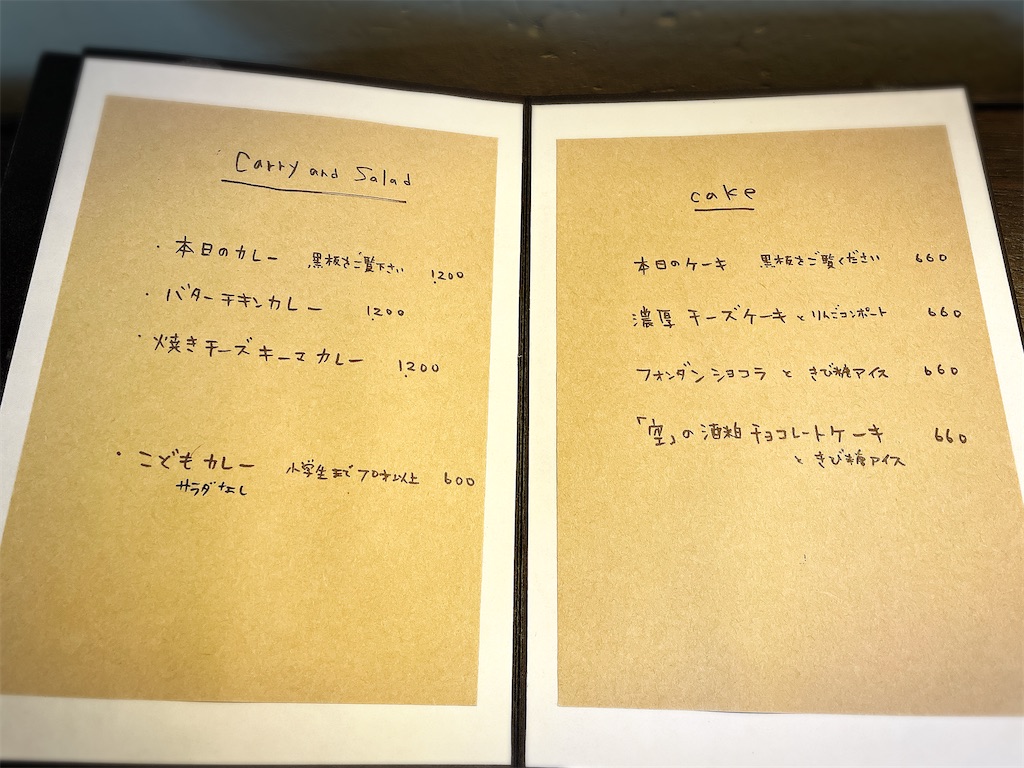 Carry and Salad
・本日のカレー 黒板をご覧下さい 1200
・バターチキンカレー 1200
・焼きチーズキーマカレー 1200
・こどもカレー 小学生まで 70才以上 600
サラダなし
cake
本日のケーキ 黒板をご覧ください 660
濃厚チーズケーキとりんごコンポート 660
フォンダンショコラ と きび糖アイス 660
「空」の酒粕チョコレートケーキ 660
と きび糖アイス